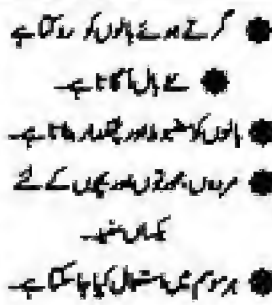 گرتے ہوئے بالوں کو روکتا ہے
نئے بال اُگاتا ہے۔
بالوں کو مضبوط اور چمکدار بناتا ہے۔
مردوں، عورتوں اور بچوں کے لئے
یکساں مفید۔
ہر موسم میں استعمال کیا جا سکتا ہے۔